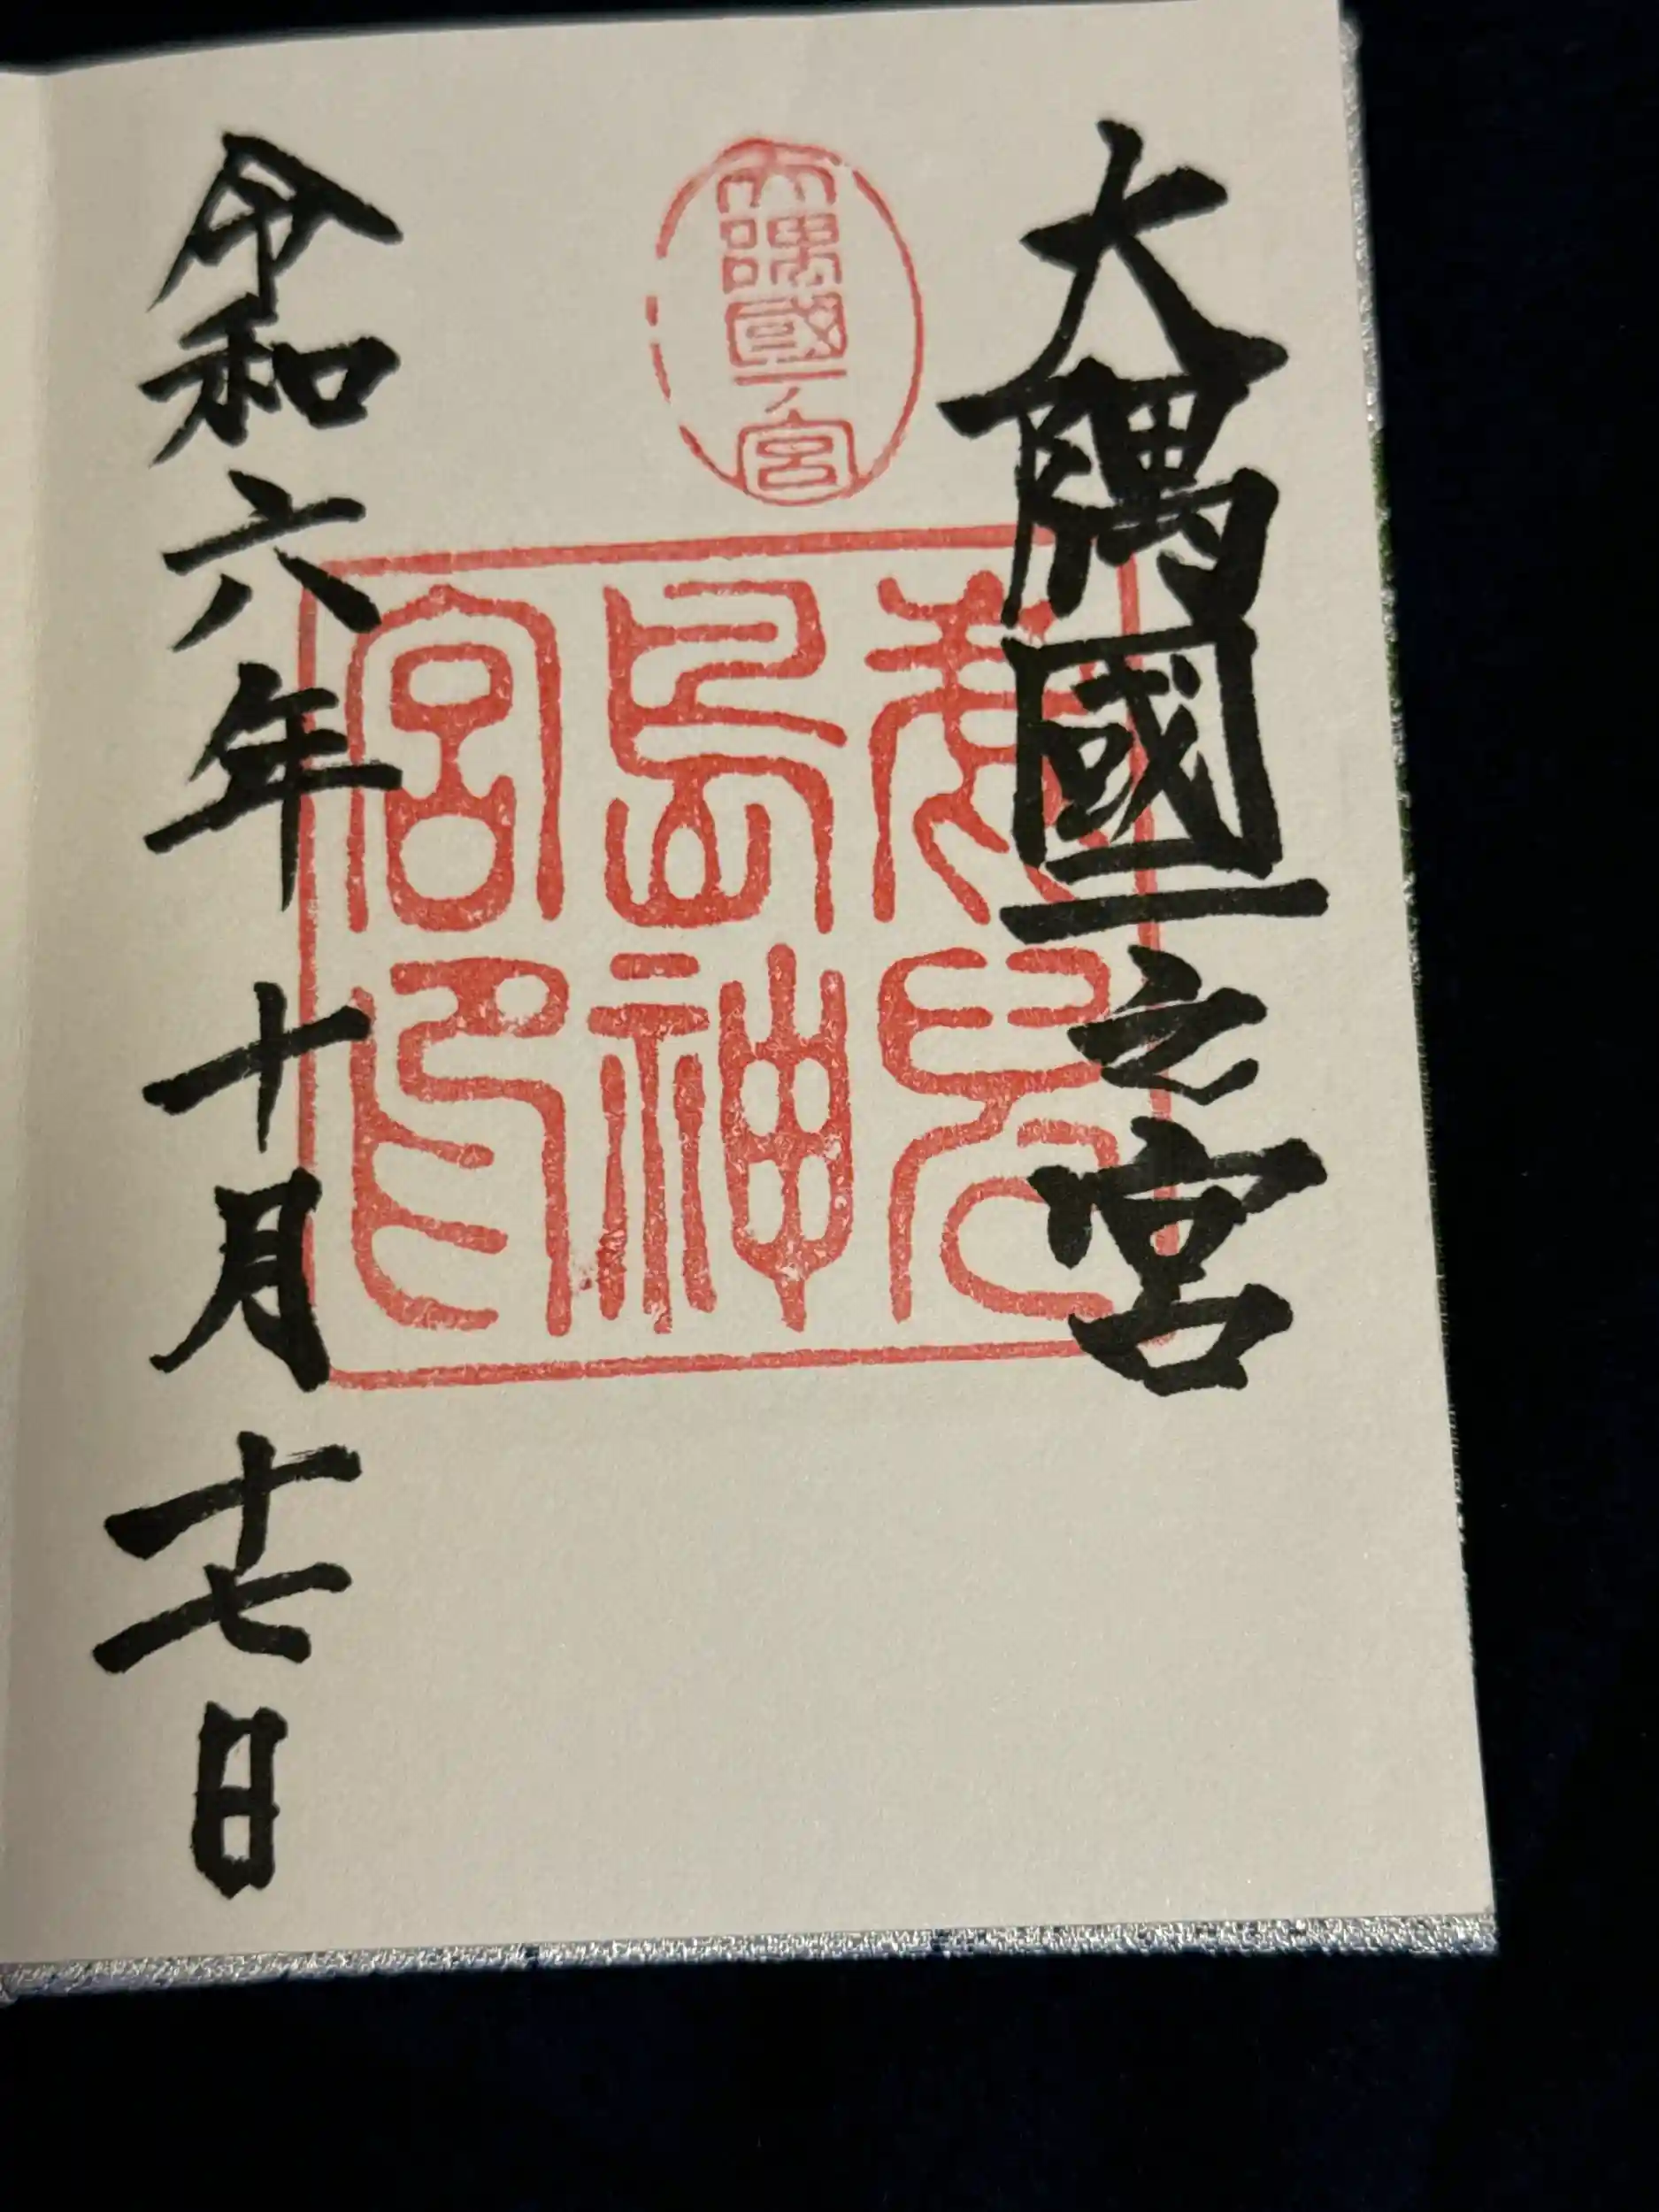 大隅國一之宮
大隅國一ノ宮
鹿兒
島神
宮印
令和六年十月十七日